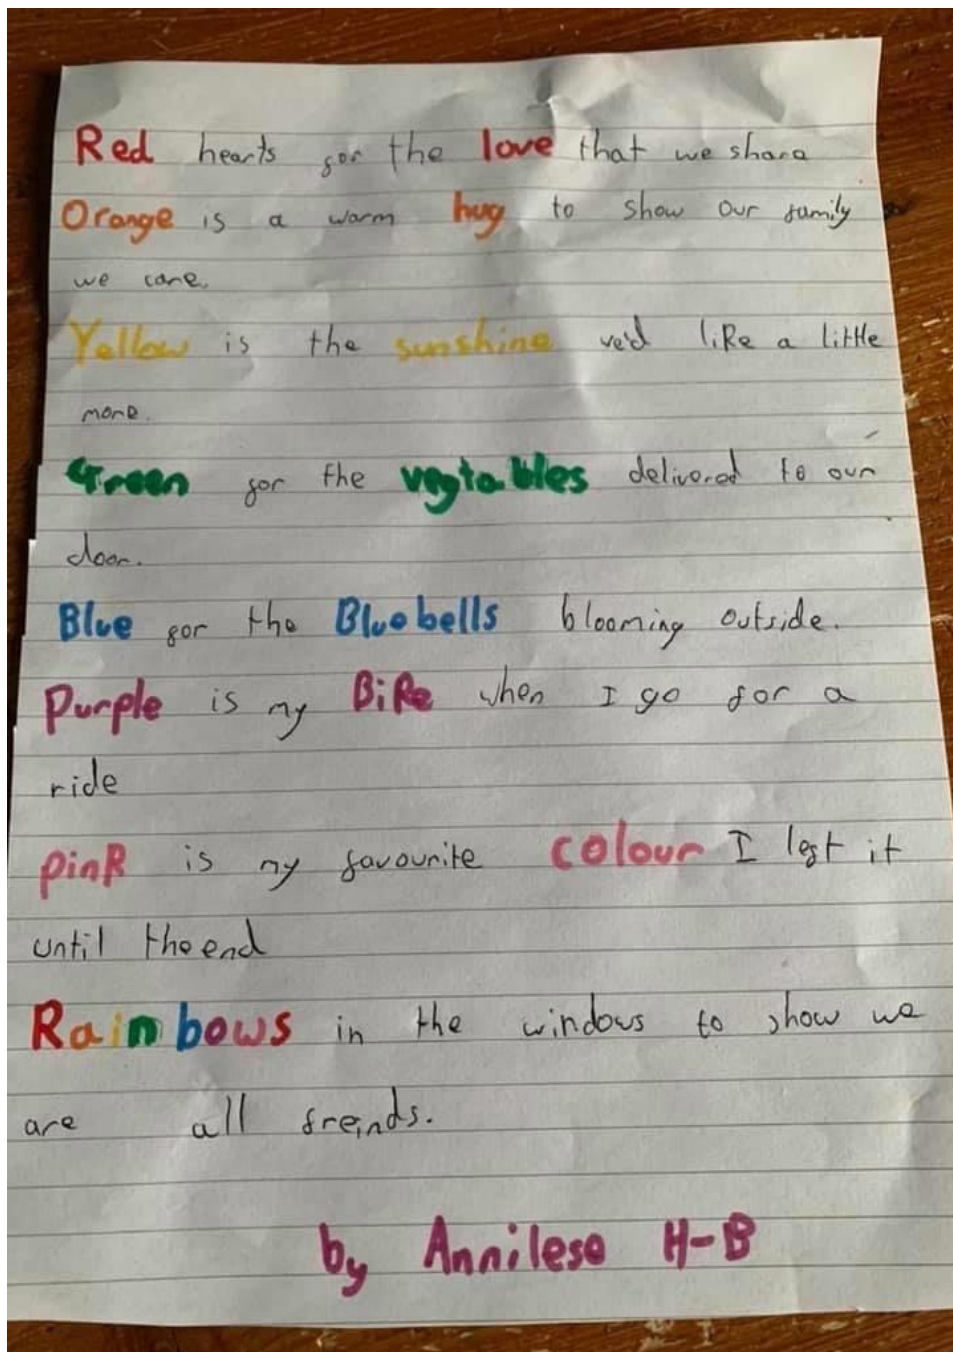 Red hearts for the love that we share
Orange is a warm hug to show our family
we care.
Yellow is the sunshine we'd like a little
more.
Green for the vegtables delivered to our
door.
Blue for the Bluebells blooming outside.
Purple is my Bike when I go for a
ride
pink is my favourite colour I left it
until the end
Rainbows in the windows to show we
are all freinds.
by Annilese H-B